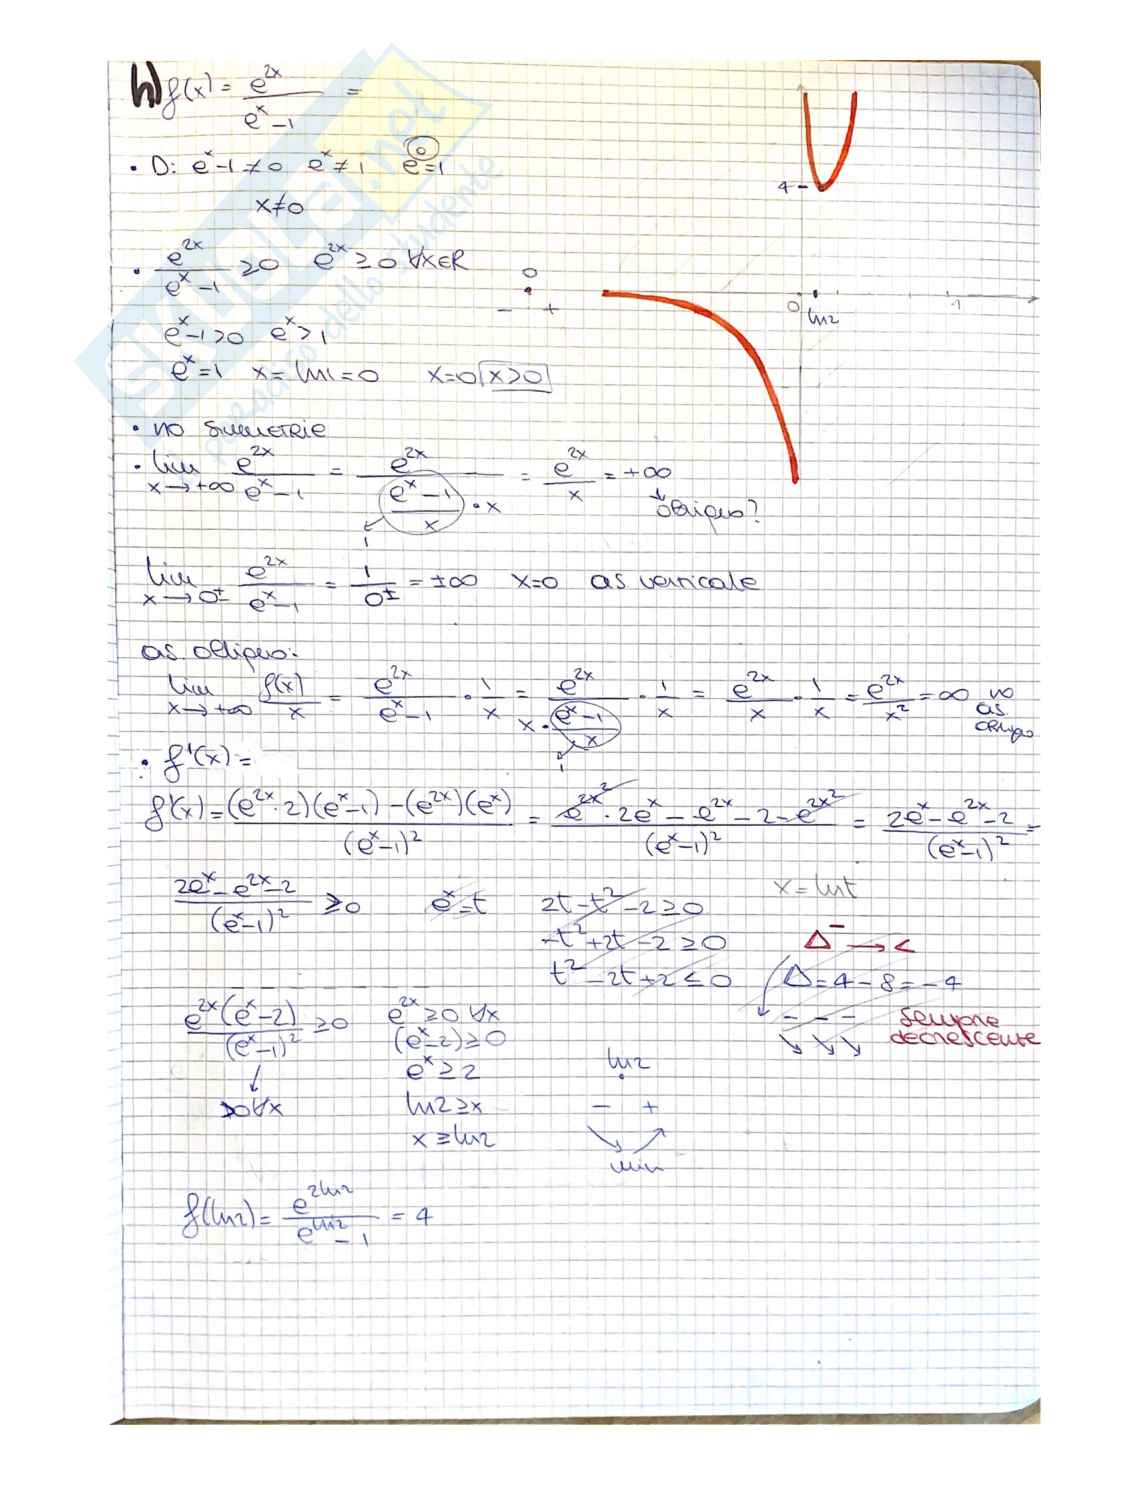 h) f(x) = e^{2x} / (e^x - 1) =
• D: e^x - 1 ≠ 0   e^x ≠ 1   e^0 = 1
x ≠ 0
4
0   ln2   1
• e^{2x} / (e^x - 1) ≥ 0   e^{2x} ≥ 0 ∀x∈R
0
-   +
e^x - 1 > 0   e^x > 1
e^x = 1   x = ln1 = 0   x = 0   x > 0
• no simmetrie
• lim x→+∞ e^{2x} / (e^x - 1) = e^{2x} / ((e^x - 1)/x · x) = e^{2x} / x = +∞
1
obliquo?
lim x→0± e^{2x} / (e^x - 1) = 1 / 0± = ±∞   x = 0   as verticale
as. obliquo:
lim x→+∞ f(x)/x = e^{2x} / (e^x - 1) · 1/x = e^{2x} / (x · (e^x - 1)/x) · 1/x = e^{2x}/x · 1/x = e^{2x}/x² = ∞   no as. obliquo
1
• f'(x) =
f'(x) = ((e^{2x} · 2)(e^x - 1) - (e^{2x})(e^x)) / (e^x - 1)² = (e^{2x²} · 2e^x - e^{2x} - 2 - e^{2x²}) / (e^x - 1)² = (2e^x - e^{2x} - 2) / (e^x - 1)² =
(2e^x - e^{2x} - 2) / (e^x - 1)² ≥ 0   e^x = t   2t - t² - 2 ≥ 0   x = lnt
-t² + 2t - 2 ≥ 0   Δ^- → <
t² - 2t + 2 ≤ 0   Δ = 4 - 8 = -4
e^{2x}(e^x - 2) / (e^x - 1)² ≥ 0   e^{2x} ≥ 0 ∀x   - - -   sempre
(e^x - 2) ≥ 0   ↘ ↘ ↘   decrescente
e^x ≥ 2   ln2
>0 ∀x   ln2 ≥ x   -   +
x ≥ ln2   ↘ ↗
min
f(ln2) = e^{2ln2} / (e^{ln2} - 1) = 4
SKUOLA.net
paradiso dello studente